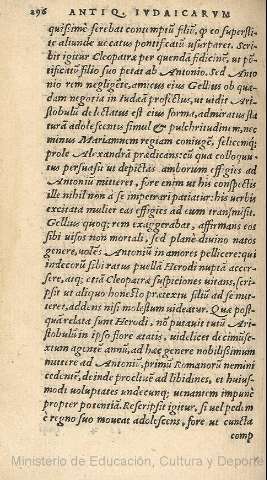 296 ANTIQ. IVDAICARVM
quissime ferebat contemptũ filiũ, q̃ eo superstite
aliunde uocatus pontificatũ usurparet. Scribit
igitur Cleopatræ per quendã fidicinẽ, ut põtificatũ
filio suo petat ab Antonio. Sed Antonio
rem negligẽte, amicus eius Gellius ob quædam
negotia in Iudæã profectus, ut uidit Aristobulũ
delectatus est eius forma, admiratus staturã
adolescentis simul & pulchritudinem, nec
minus Mariamnem regiam coniugẽ, felicemq;
prole Alexandrã prædicans: cũ qua colloquutus
persuasit ut depictas amborum effigies ad
Antoniũ mitteret, fore enim ut his conspectis
ille nihil non à se impetrari patiatur: his uerbis
excitata mulier eas effigies ad eum transmisit.
Gellius quoq; rem exaggerabat, affirmans eos
sibi uisos non mortali, sed planè diuino natos
genere, uolẽs Antoniũ in amores pellicere: qui
indecorũ sibi ratus puellã Herodi nuptã accersere,
atq; etiã Cleopatræ suspiciones uitans, scripsit
ut aliquo honesto prætextu filiũ ad se mitteret,
addens nisi molestum uideatur. Quæ postquã
relata sunt Herodi, nõ putauit tutũ Aristobulũ
in ipso flore ætatis, uidelicet decimũsextum
agentẽ annũ, ad hæc genere nobilissimum
mittere ad Antoniũ, primũ Romanorũ nemini
cedentẽ, deinde procliuẽ ad libidines, et huiusmodi
uoluptates undecunq; uenantem impune
propter potentiã. Rescripsit igitur, si uel pedem
è regno suo moueat adolescens, fore ut cuncta
comp
Ministerio de Educación, Cultura y Deporte